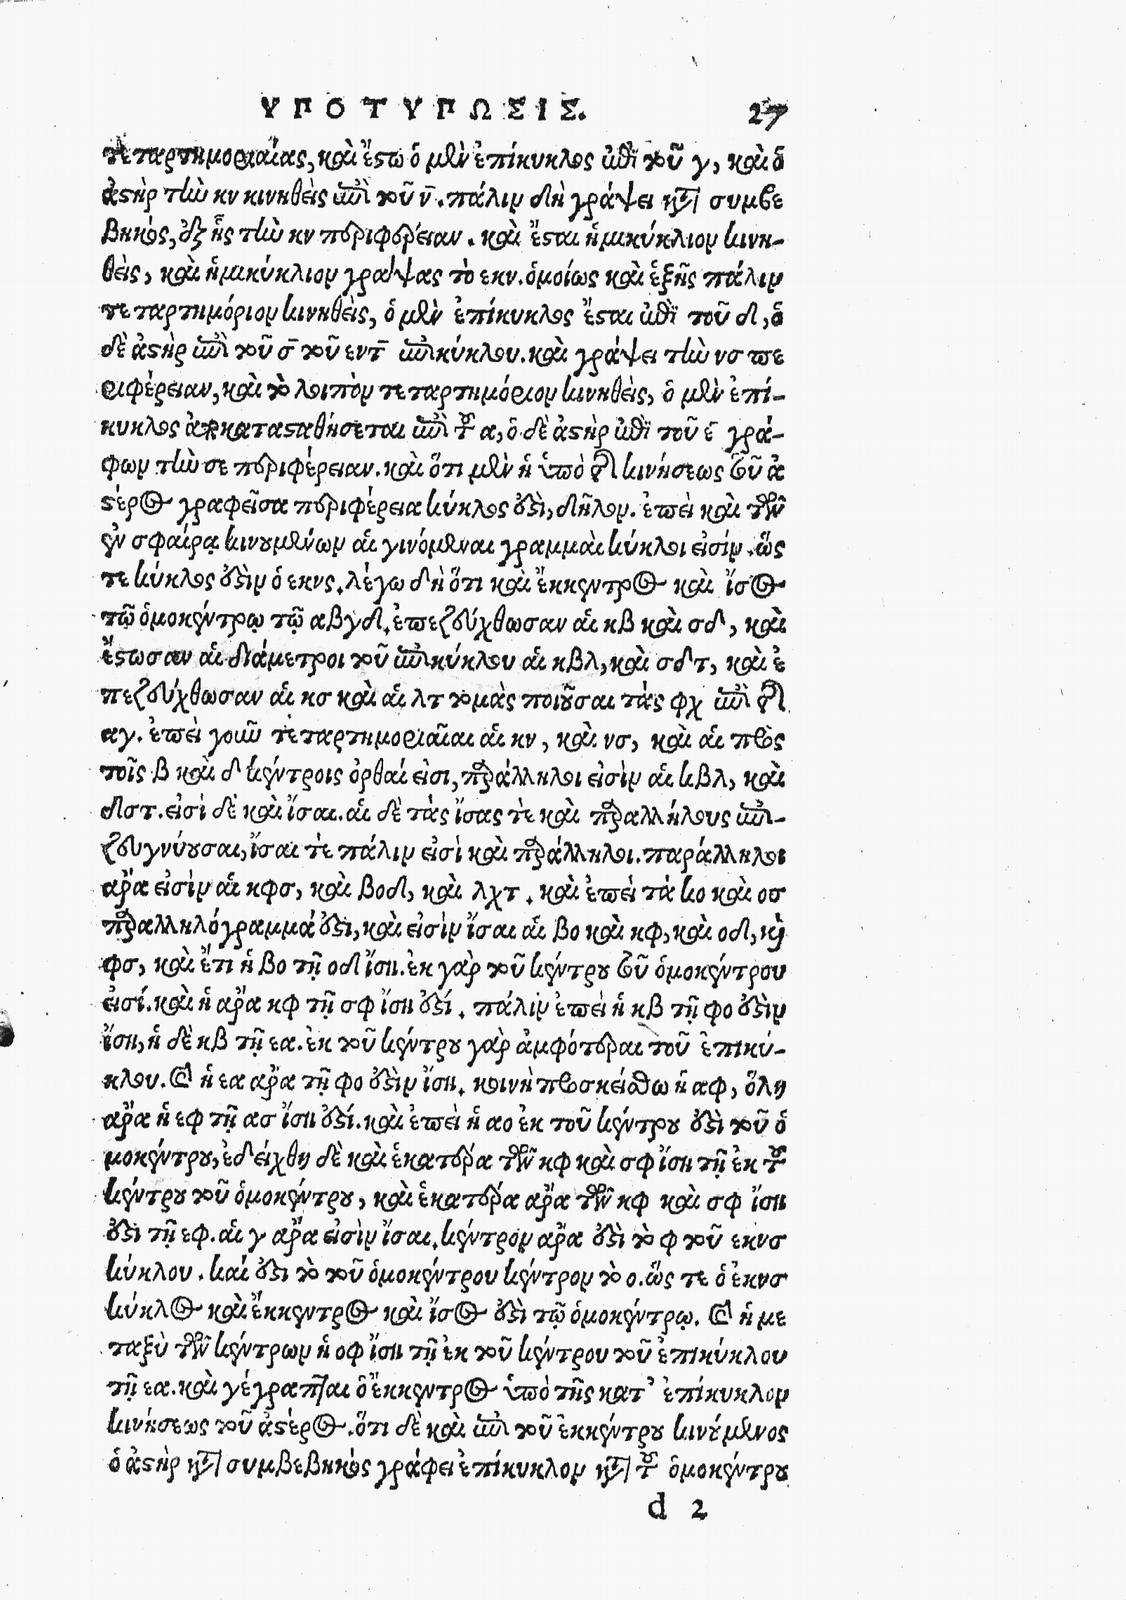 ΥΠΟΤΥΠΩΣΙΣ. 27
τεταρτημοριαίας, καὶ ἔστω ὁ μὲν ἐπίκυκλος ἐπὶ τοῦ γ, καὶ ὁ
ἀστὴρ τὴν κν κινηθεὶς ἐπὶ τοῦ ν. πάλιν δὴ γράψει κατὰ συμβε
βηκὸς, ἐξ ἧς τὴν κν περιφέρειαν. καὶ ἔσται ἡμικύκλιον κινη-
θεὶς, καὶ ἡμικύκλιον γράψας τὸ εκν. ὁμοίως καὶ ἑξῆς πάλιν
τεταρτημόριον κινηθεὶς, ὁ μὲν ἐπίκυκλος ἔσται ἐπὶ τοῦ δ, ὁ
δὲ ἀστὴρ ἐπὶ τοῦ σ τοῦ εντ ἐπικύκλου. καὶ γράψει τὴν νσ πε
ριφέρειαν, καὶ τὸ λοιπὸν τεταρτημόριον κινηθεὶς, ὁ μὲν ἐπί-
κυκλος ἀποκατασταθήσεται ἐπὶ τὸ α, ὁ δὲ ἀστὴρ ἐπὶ τοῦ ε γρά-
φων τὴν σε περιφέρειαν. καὶ ὅτι μὲν ἡ ὑπὸ τῆς κινήσεως τοῦ ἀ
στέρος γραφεῖσα περιφέρεια κύκλος ἐστὶ, δῆλον. ἐπεὶ καὶ τῶν
ἐν σφαίρᾳ κινουμένων αἱ γινόμεναι γραμμαὶ κύκλοι εἰσίν. ὥς
τε κύκλος ἐστὶν ὁ εκνς. λέγω δὴ ὅτι καὶ ἔκκεντρος καὶ ἴσος
τῷ ὁμοκέντρῳ τῷ αβγδ. ἐπεζεύχθωσαν αἱ κβ καὶ σδ, καὶ
ἔστωσαν αἱ διάμετροι τοῦ ἐπικύκλου αἱ κβλ, καὶ σδτ, καὶ ἐ
πεζεύχθωσαν αἱ κσ καὶ αἱ λτ τομὰς ποιοῦσαι τὰς φχ ἐπὶ τῆς
αγ. ἐπεὶ γοῦν τεταρτημοριαῖαι αἱ κν, καὶ νσ, καὶ αἱ πρὸς
τοῖς β καὶ δ κέντροις ὀρθαί εἰσι, παράλληλοι εἰσὶν αἱ κβλ, καὶ
δστ. εἰσὶ δὲ καὶ ἴσαι. αἱ δὲ τὰς ἴσας τὲ καὶ παραλλήλους ἐπι-
ζευγνύουσαι, ἴσαι τὲ πάλιν εἰσὶ καὶ παράλληλοι. παράλληλοι
ἄρα εἰσὶν αἱ κφσ, καὶ βοδ, καὶ λχτ. καὶ ἐπεὶ τὰ κο καὶ οσ
παραλληλόγραμμά ἐστι, καὶ εἰσὶν ἴσαι αἱ βο καὶ κφ, καὶ οδ, καὶ
φσ, καὶ ἔτι ἡ βο τῇ οδ ἴση. ἐκ γὰρ τοῦ κέντρου τοῦ ὁμοκέντρου
εἰσί. καὶ ἡ ἄρα κφ τῇ σφ ἴση ἐστί. πάλιν ἐπεὶ ἡ κβ τῇ φο ἐστὶν
ἴση, ἡ δὲ κβ τῇ εα. ἐκ τοῦ κέντρου γὰρ ἀμφότεραι τοῦ ἐπικύ-
κλου. Καὶ ἡ εα ἄρα τῇ φο ἐστὶν ἴση. κοινὴ προσκείσθω ἡ αφ, ὅλη
ἄρα ἡ εφ τῇ ασ ἴση ἐστί. καὶ ἐπεὶ ἡ αο ἐκ τοῦ κέντρου ἐστὶ τοῦ ὁ
μοκέντρου, ἐδείχθη δὲ καὶ ἑκατέρα τῶν κφ καὶ σφ ἴση τῇ ἐκ τοῦ
κέντρου τοῦ ὁμοκέντρου, καὶ ἑκατέρα ἄρα τῶν κφ καὶ σφ ἴση
ἐστὶ τῇ εφ. αἱ γ ἄρα εἰσὶν ἴσαι. κέντρον ἄρα ἐστὶ τὸ φ τοῦ εκνσ
κύκλου. καί ἐστι τὸ τοῦ ὁμοκέντρου κέντρον τὸ ο. ὥς τε ὁ ἐκνσ
κύκλος καὶ ἔκκεντρος καὶ ἴσος ἐστὶ τῷ ὁμοκέντρῳ. Καὶ ἡ με
ταξὺ τῶν κέντρων ἡ οφ ἴση τῇ ἐκ τοῦ κέντρου τοῦ ἐπικύκλου
τῇ εα. καὶ γέγραπται ὁ ἔκκεντρος ὑπὸ τῆς κατ' ἐπίκυκλον
κινήσεως τοῦ ἀστέρος. ὅτι δὲ καὶ ἐπὶ τοῦ ἐκκέντρου κινούμενος
ὁ ἀστὴρ κατὰ συμβεβηκὸς γράφει ἐπίκυκλον κατὰ τοῦ ὁμοκέντρου
d 2